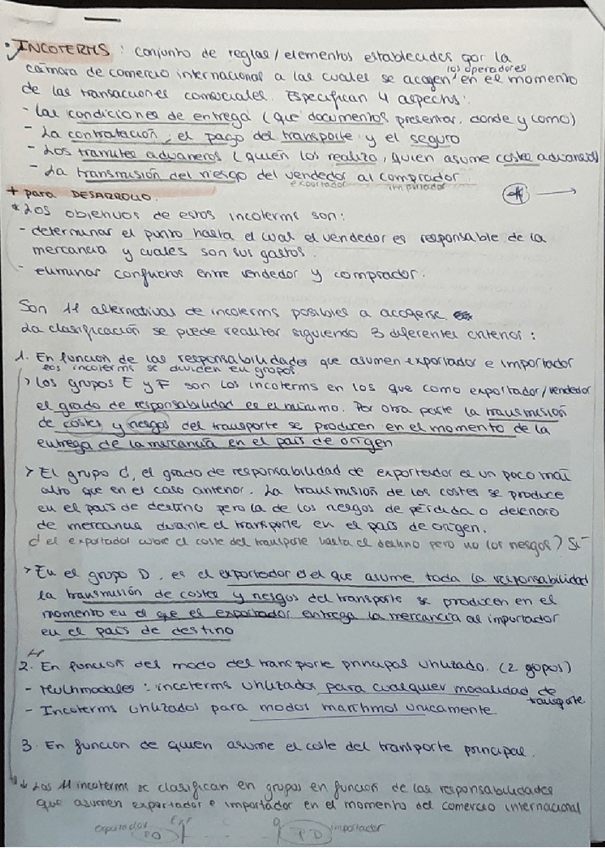 · INCOTERMS : conjunto de reglas/elementos establecidos por la
cámara de comercio internacional a las cuales se acogen los operadores en el momento
de las transacciones comerciales. Especifican 4 aspectos:
- Las condiciones de entrega (que documentos presentar, donde y como)
- La contratación, el pago del transporte y el seguro
- Los trámites aduaneros (quién los realiza, quien asume costes aduanas)
- La transmisión del riesgo del vendedor al comprador
exportador importador
+ para DESARROLLO.
* Los objetivos de estos incoterms son:
- determinar el punto hasta el cual el vendedor es responsable de la
mercancía y cuales son sus gastos.
- eliminar conflictos entre vendedor y comprador.
Son 11 alternativas de incoterms posibles a acogerse
La clasificación se puede realizar siguiendo 3 diferentes criterios:
1. En función de las responsabilidades que asumen exportador e importador
los incoterms se dividen en grupos
> Los grupos E y F son los incoterms en los que como exportador/vendedor
el grado de responsabilidad es el mínimo. Por otra parte la transmisión
de costes y riesgos del transporte se producen en el momento de la
entrega de la mercancía en el país de origen
> El grupo C, el grado de responsabilidad de exportador es un poco más
alto que en el caso anterior. La transmisión de los costes se produce
en el país de destino pero la de los riesgos de pérdida o deterioro
de mercancía durante el transporte en el país de origen.
d el exportador cubre el coste del transporte hasta el destino pero no los riesgos? Si
> En el grupo D, es el exportador el que asume toda la responsabilidad
la transmisión de costes y riesgos del transporte se producen en el
momento en el que el exportador entrega la mercancía al importador
en el país de destino
2. En función del modo del transporte principal utilizado. (2 grupos)
- Multimodales: incoterms utilizados para cualquier modalidad de transporte
- Incoterms utilizados para modos marítimos únicamente.
3. En función de quien asume el coste del transporte principal.
* Los 11 incoterms se clasifican en grupos en función de las responsabilidades
que asumen exportador e importador en el momento del comercio internacional
exportador PO PD importador